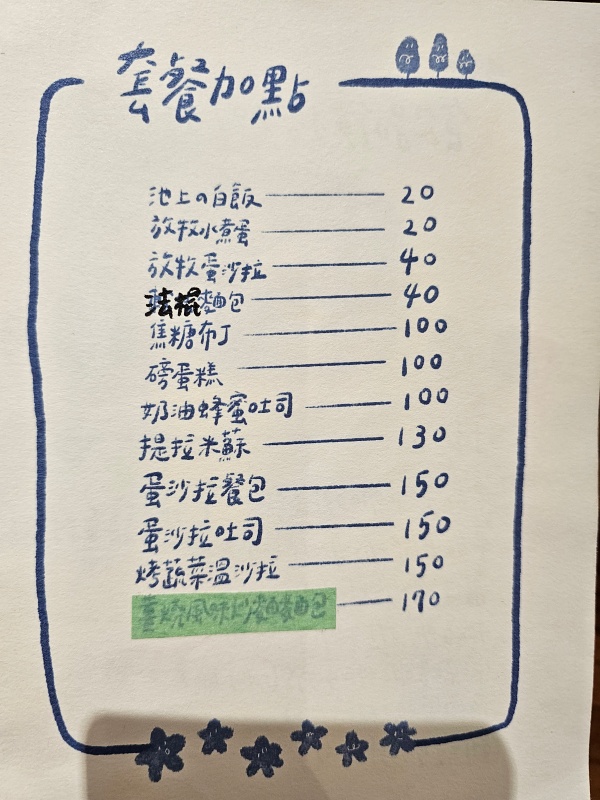 套餐加點
池上の白飯 20
放牧水煮蛋 20
放牧蛋沙拉 40
法棍麵包 40
焦糖布丁 100
磅蛋糕 100
奶油蜂蜜吐司 100
提拉米蘇 130
蛋沙拉餐包 150
蛋沙拉吐司 150
烤蔬菜溫沙拉 150
薑燒風味炒麵麵包 170